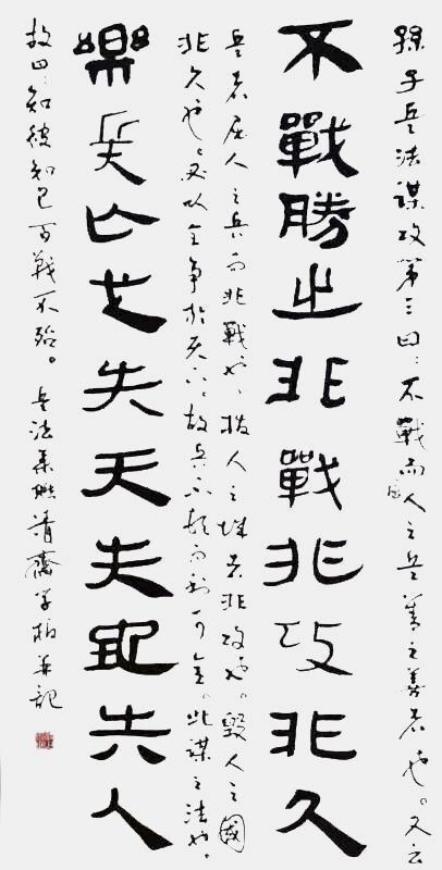 孫子兵法謀攻第三曰：不戰而屈人之兵善之善者也。又云
不戰勝之非戰非攻非久
兵者屈人之兵而非戰也、拔人之城者非攻也。毀人之國
非久也、必以全争於天下、故兵不頓而利可全。此謀之法也。
樂兵失天失地失人
故曰：知彼知己百戰不殆。兵法集聯 齋學柏并記